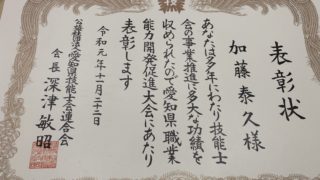 表彰状
加藤泰久様
あなたは多年にわたり技能士
会の事業推進に多大な功績を
収められたので愛知県職業
能力開発促進大会にあたり
表彰します
令和元年十一月二十二日
公益社団法人愛知県技能士会連合会
会長 深津敏昭